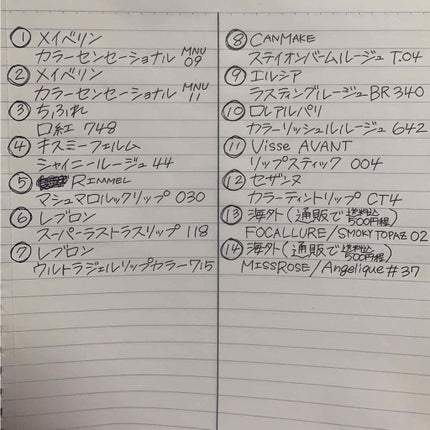 ① メイベリン
カラーセンセーショナル MNU 09
② メイベリン
カラーセンセーショナル MNU 11
③ ちふれ
口紅 748
④ キスミーフェルム
シャイニールージュ 44
⑤ RIMMEL
マシュマロルックリップ 030
⑥ レブロン
スーパーラストラスリップ 118
⑦ レブロン
ウルトラジェルリップカラー 715
⑧ CANMAKE
ステイオンバームルージュ T.04
⑨ エルシア
ラスティングルージュ BR340
⑩ ロレアルパリ
カラーリッシュルルージュ 642
⑪ Visse AVANT
リップスティック 004
⑫ セザンヌ
カラーティントリップ CT4
⑬ 海外(通販で送料込500円程)
FOCALLURE/SMOKY TOPAZ 02
⑭ 海外(通販で送料込500円程)
MISSROSE/Angelique #37